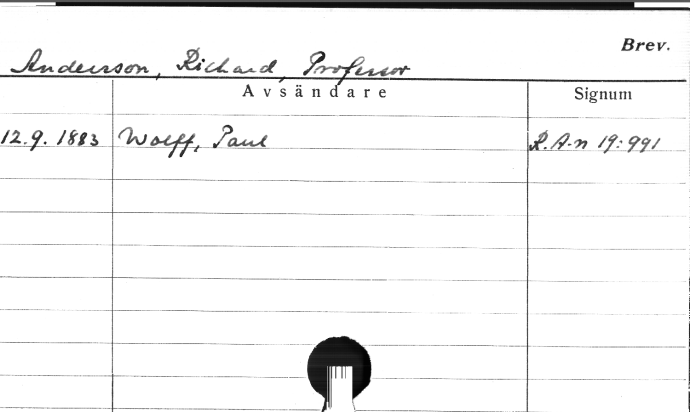 Brev.
Andersson, Richard, Professor
Avsändare Signum
12.9.1883 Wolff, Paul R.A-n 19:991